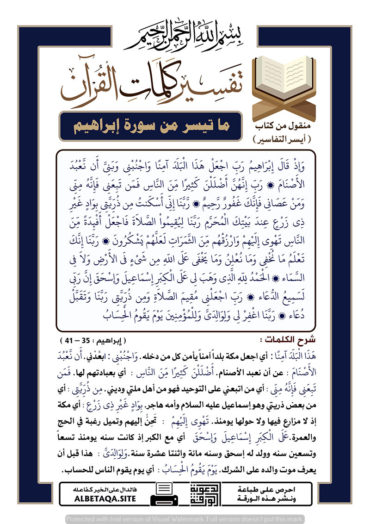 بسم الله الرحمن الرحيم
تفسير كلمات القرآن
منقول من كتاب
( أيسر التفاسير )
ما تيسر من سورة إبراهيم
وَإِذْ قَالَ إِبْرَاهِيمُ رَبِّ اجْعَلْ هَذَا الْبَلَدَ آمِنًا وَاجْنُبْنِي وَبَنِيَّ أَن نَّعْبُدَ
الأَصْنَامَ * رَبِّ إِنَّهُنَّ أَضْلَلْنَ كَثِيرًا مِّنَ النَّاسِ فَمَن تَبِعَنِي فَإِنَّهُ مِنِّي
وَمَنْ عَصَانِي فَإِنَّكَ غَفُورٌ رَّحِيمٌ * رَّبَّنَا إِنِّي أَسْكَنتُ مِن ذُرِّيَّتِي بِوَادٍ غَيْرِ
ذِي زَرْعٍ عِندَ بَيْتِكَ الْمُحَرَّمِ رَبَّنَا لِيُقِيمُواْ الصَّلاَةَ فَاجْعَلْ أَفْئِدَةً مِّنَ
النَّاسِ تَهْوِي إِلَيْهِمْ وَارْزُقْهُم مِّنَ الثَّمَرَاتِ لَعَلَّهُمْ يَشْكُرُونَ * رَبَّنَا إِنَّكَ
تَعْلَمُ مَا نُخْفِي وَمَا نُعْلِنُ وَمَا يَخْفَى عَلَى اللّهِ مِن شَيْءٍ فَي الأَرْضِ وَلاَ فِي
السَّمَاء * الْحَمْدُ لِلّهِ الَّذِي وَهَبَ لِي عَلَى الْكِبَرِ إِسْمَاعِيلَ وَإِسْحَقَ إِنَّ رَبِّي
لَسَمِيعُ الدُّعَاء * رَبِّ اجْعَلْنِي مُقِيمَ الصَّلاَةِ وَمِن ذُرِّيَّتِي رَبَّنَا وَتَقَبَّلْ
دُعَاء * رَبَّنَا اغْفِرْ لِي وَلِوَالِدَيَّ وَلِلْمُؤْمِنِينَ يَوْمَ يَقُومُ الْحِسَابُ
شرح الكلمات :
( إبراهيم : 35 – 41 )
هَذَا الْبَلَدَ آمِنًا : أي اجعل مكة بلداً آمناً يأمن كل من دخله. وَاجْنُبْنِي : أبعدني. أَن نَّعْبُدَ
الأَصْنَامَ : عن أن نعبد الأصنام. أَضْلَلْنَ كَثِيرًا مِّنَ النَّاسِ : أي بعبادتهم لها. فَمَن
تَبِعَنِي فَإِنَّهُ مِنِّي : أي من اتبعني على التوحيد فهو من أهل ملتي وديني. مِن ذُرِّيَّتِي : أي
من بعض ذريتي وهو إسماعيل عليه السلام وأمه هاجر. بِوَادٍ غَيْرِ ذِي زَرْعٍ : أي مكة
إذ لا مزارع فيها ولا حولها يومئذ. تَهْوِي إِلَيْهِمْ : تحنّ إليهم وتميل رغبة في الحج
والعمرة. عَلَى الْكِبَرِ إِسْمَاعِيلَ وَإِسْحَقَ : أي مع الكبر إذ كانت سنه يومئذ تسعاً
وتسعين سنه وولد له إسحق وسنه مائة واثنتا عشرة سنة. وَلِوَالِدَيَّ : هذا قبل أن
يعرف موت والده على الشرك. يَوْمَ يَقُومُ الْحِسَابُ : أي يوم يقوم الناس للحساب.
احرص على طباعة
ونشر هذه الورقة
الدعوية
الورقة
فالدال على الخير كفاعله
ALBETAQA.SITE
Protected with trial version of Visual Watermark. Full version doesn't put this mark.